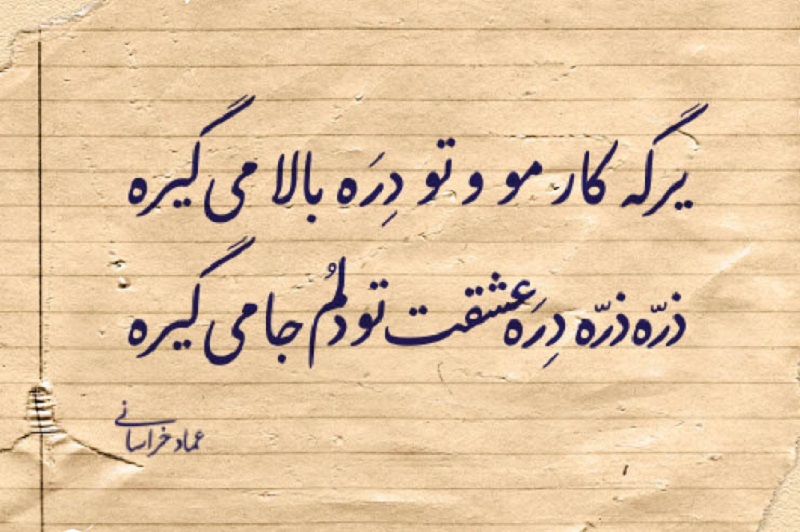 یرگه کار مو و تو دِرَه بالا می گیره
ذرّه ذرّه دِرَه عشقت تو دلُم جا می گیره
عماد خراسانی